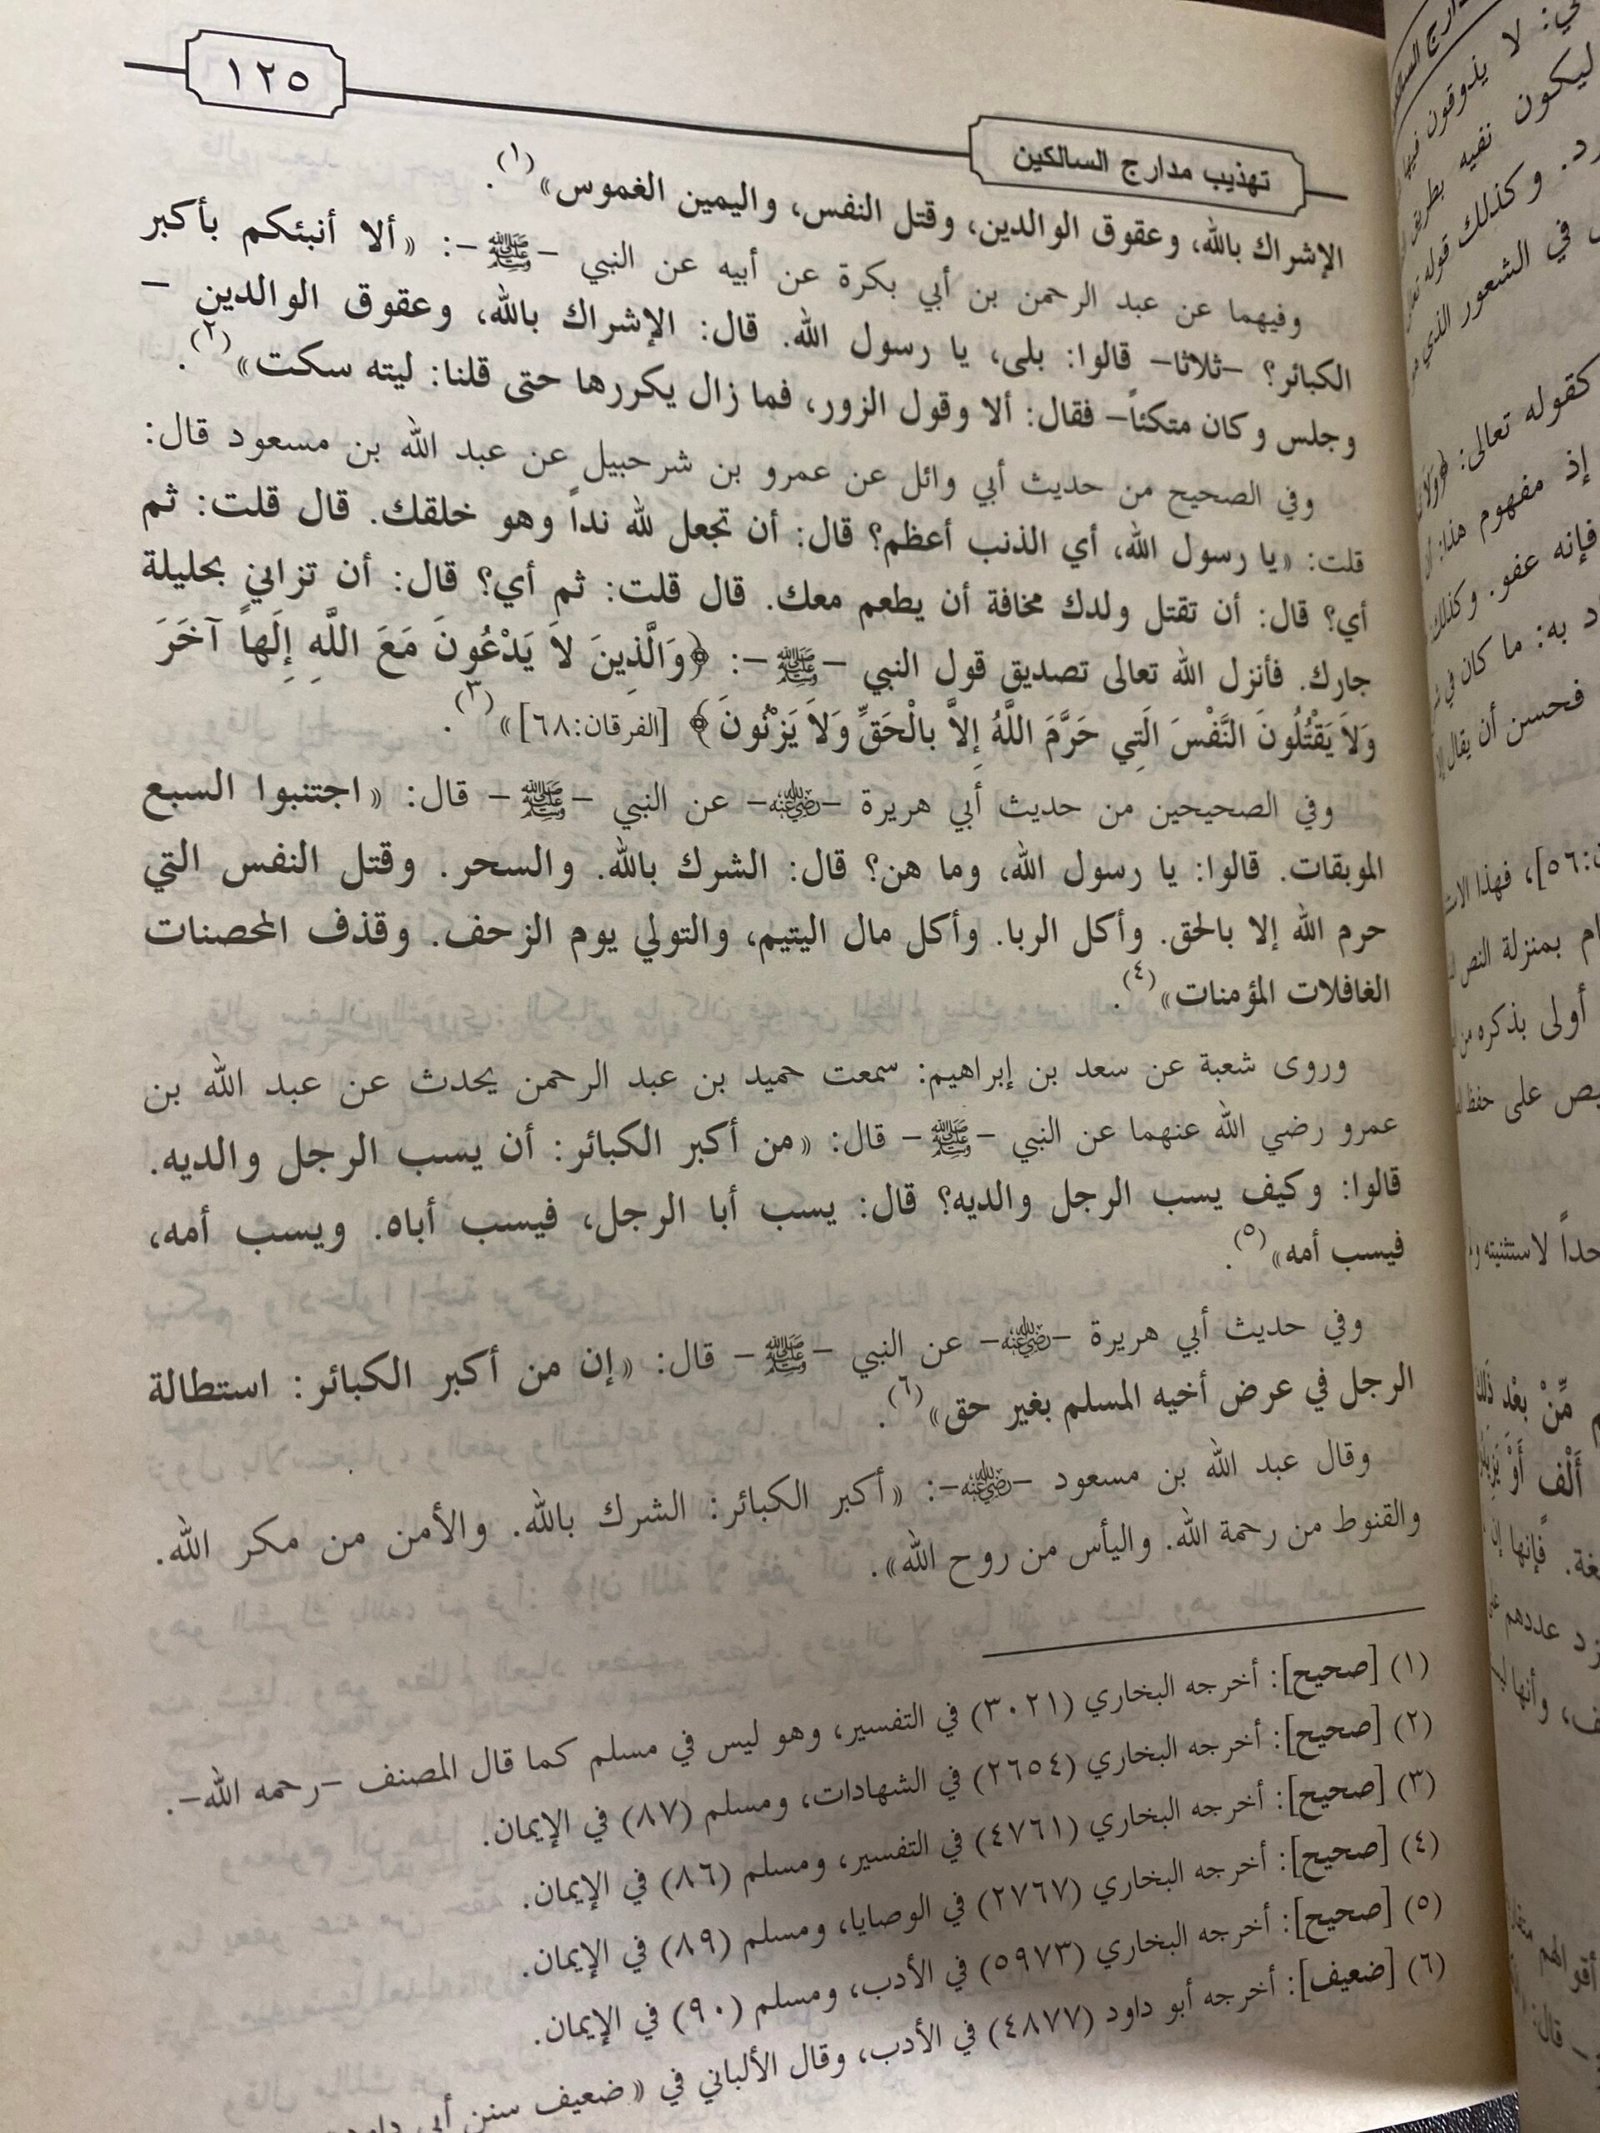 ١٢٥
تهذيب مدارج السالكين
الإشراك بالله، وعقوق الوالدين، وقتل النفس، واليمين الغموس»(١).
وفيهما عن عبد الرحمن بن أبي بكرة عن أبيه عن النبي –ﷺ–: «ألا أنبئكم بأكبر
الكبائر؟ –ثلاثا– قالوا: بلى، يا رسول الله. قال: الإشراك بالله، وعقوق الوالدين –
وجلس وكان متكئاً– فقال: ألا وقول الزور، فما زال يكررها حتى قلنا: ليته سكت»(٢).
وفي الصحيح من حديث أبي وائل عن عمرو بن شرحبيل عن عبد الله بن مسعود قال:
قلت: «يا رسول الله، أي الذنب أعظم؟ قال: أن تجعل لله نداً وهو خلقك. قال قلت: ثم
أي؟ قال: أن تقتل ولدك مخافة أن يطعم معك. قال قلت: ثم أي؟ قال: أن تزاني بحليلة
جارك. فأنزل الله تعالى تصديق قول النبي –ﷺ–: ﴿وَالَّذِينَ لاَ يَدْعُونَ مَعَ اللَّهِ إِلَهاً آخَرَ
وَلاَ يَقْتُلُونَ النَّفْسَ الَتِي حَرَّمَ اللَّهُ إِلاَّ بالْحَقِّ وَلاَ يَزْنُونَ﴾ [الفرقان:٦٨]»(٣).
وفي الصحيحين من حديث أبي هريرة –رضي الله عنه– عن النبي –ﷺ– قال: «اجتنبوا السبع
الموبقات. قالوا: يا رسول الله، وما هن؟ قال: الشرك بالله. والسحر. وقتل النفس التي
حرم الله إلا بالحق. وأكل الربا. وأكل مال اليتيم، والتولي يوم الزحف. وقذف المحصنات
الغافلات المؤمنات»(٤).
وروى شعبة عن سعد بن إبراهيم: سمعت حميد بن عبد الرحمن يحدث عن عبد الله بن
عمرو رضي الله عنهما عن النبي –ﷺ– قال: «من أكبر الكبائر: أن يسب الرجل والديه.
قالوا: وكيف يسب الرجل والديه؟ قال: يسب أبا الرجل، فيسب أباه. ويسب أمه،
فيسب أمه»(٥).
وفي حديث أبي هريرة –رضي الله عنه– عن النبي –ﷺ– قال: «إن من أكبر الكبائر: استطالة
الرجل في عرض أخيه المسلم بغير حق»(٦).
وقال عبد الله بن مسعود –رضي الله عنه–: «أكبر الكبائر: الشرك بالله. والأمن من مكر الله.
والقنوط من رحمة الله. واليأس من روح الله».
(١) [صحيح]: أخرجه البخاري (٣٠٢١) في التفسير، وهو ليس في مسلم كما قال المصنف –رحمه الله–.
(٢) [صحيح]: أخرجه البخاري (٢٦٥٤) في الشهادات، ومسلم (٨٧) في الإيمان.
(٣) [صحيح]: أخرجه البخاري (٤٧٦١) في التفسير، ومسلم (٨٦) في الإيمان.
(٤) [صحيح]: أخرجه البخاري (٢٧٦٧) في الوصايا، ومسلم (٨٩) في الإيمان.
(٥) [صحيح]: أخرجه البخاري (٥٩٧٣) في الأدب، ومسلم (٩٠) في الإيمان.
(٦) [ضعيف]: أخرجه أبو داود (٤٨٧٧) في الأدب، وقال الألباني في «ضعيف سنن أبي داود
لا يذوقون
ليكون نفيه بطريق
وكذلك قوله
في الشعور الذي
كقوله تعالى:
إذ مفهوم هذا:
فإنه عفو. وكذلك
به: ما كان في
فحسن أن يقال
٥٦]، فهذا
بمنزلة النص
أولى بذكره من
على حفظ
لاستثنيته
مِّنْ بعْد ذَلِكَ
أَلْف أَوْ
فإنها إن
عددهم
وأنها
قال: